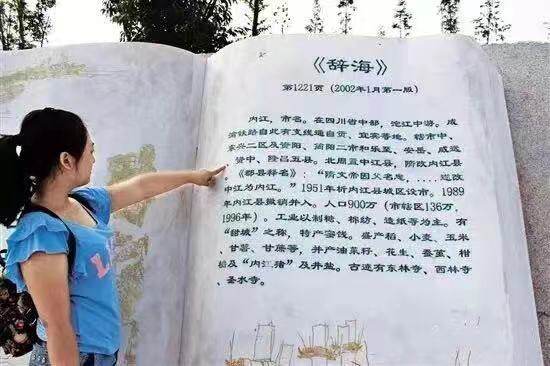 《辞海》
第1221页（2002年1月第一版）
内江，市名。在四川省中部，沱江中游。成
渝铁路自此有支线通自贡、宜宾等地。辖市中、
东兴二区及资阳、简阳二市和乐至、安岳、威远
、资中、隆昌五县。北周置中江县，隋改内江县
。《郡县释名》：“隋文帝因父名忠，……迺改
中江为内江。”1951年析内江县城区设市。1989
年内江县撤销并入。人口900万（市辖区136万，
1996年）。工业以制糖、棉纺、造纸等为主。有
“甜城”之称，特产蜜饯。盛产稻、小麦、玉米
、甘薯、甘蔗等，并产油菜籽、花生、蚕茧、柑
桔及“内江猪”及井盐。古迹有东林寺、西林寺
、圣水寺。